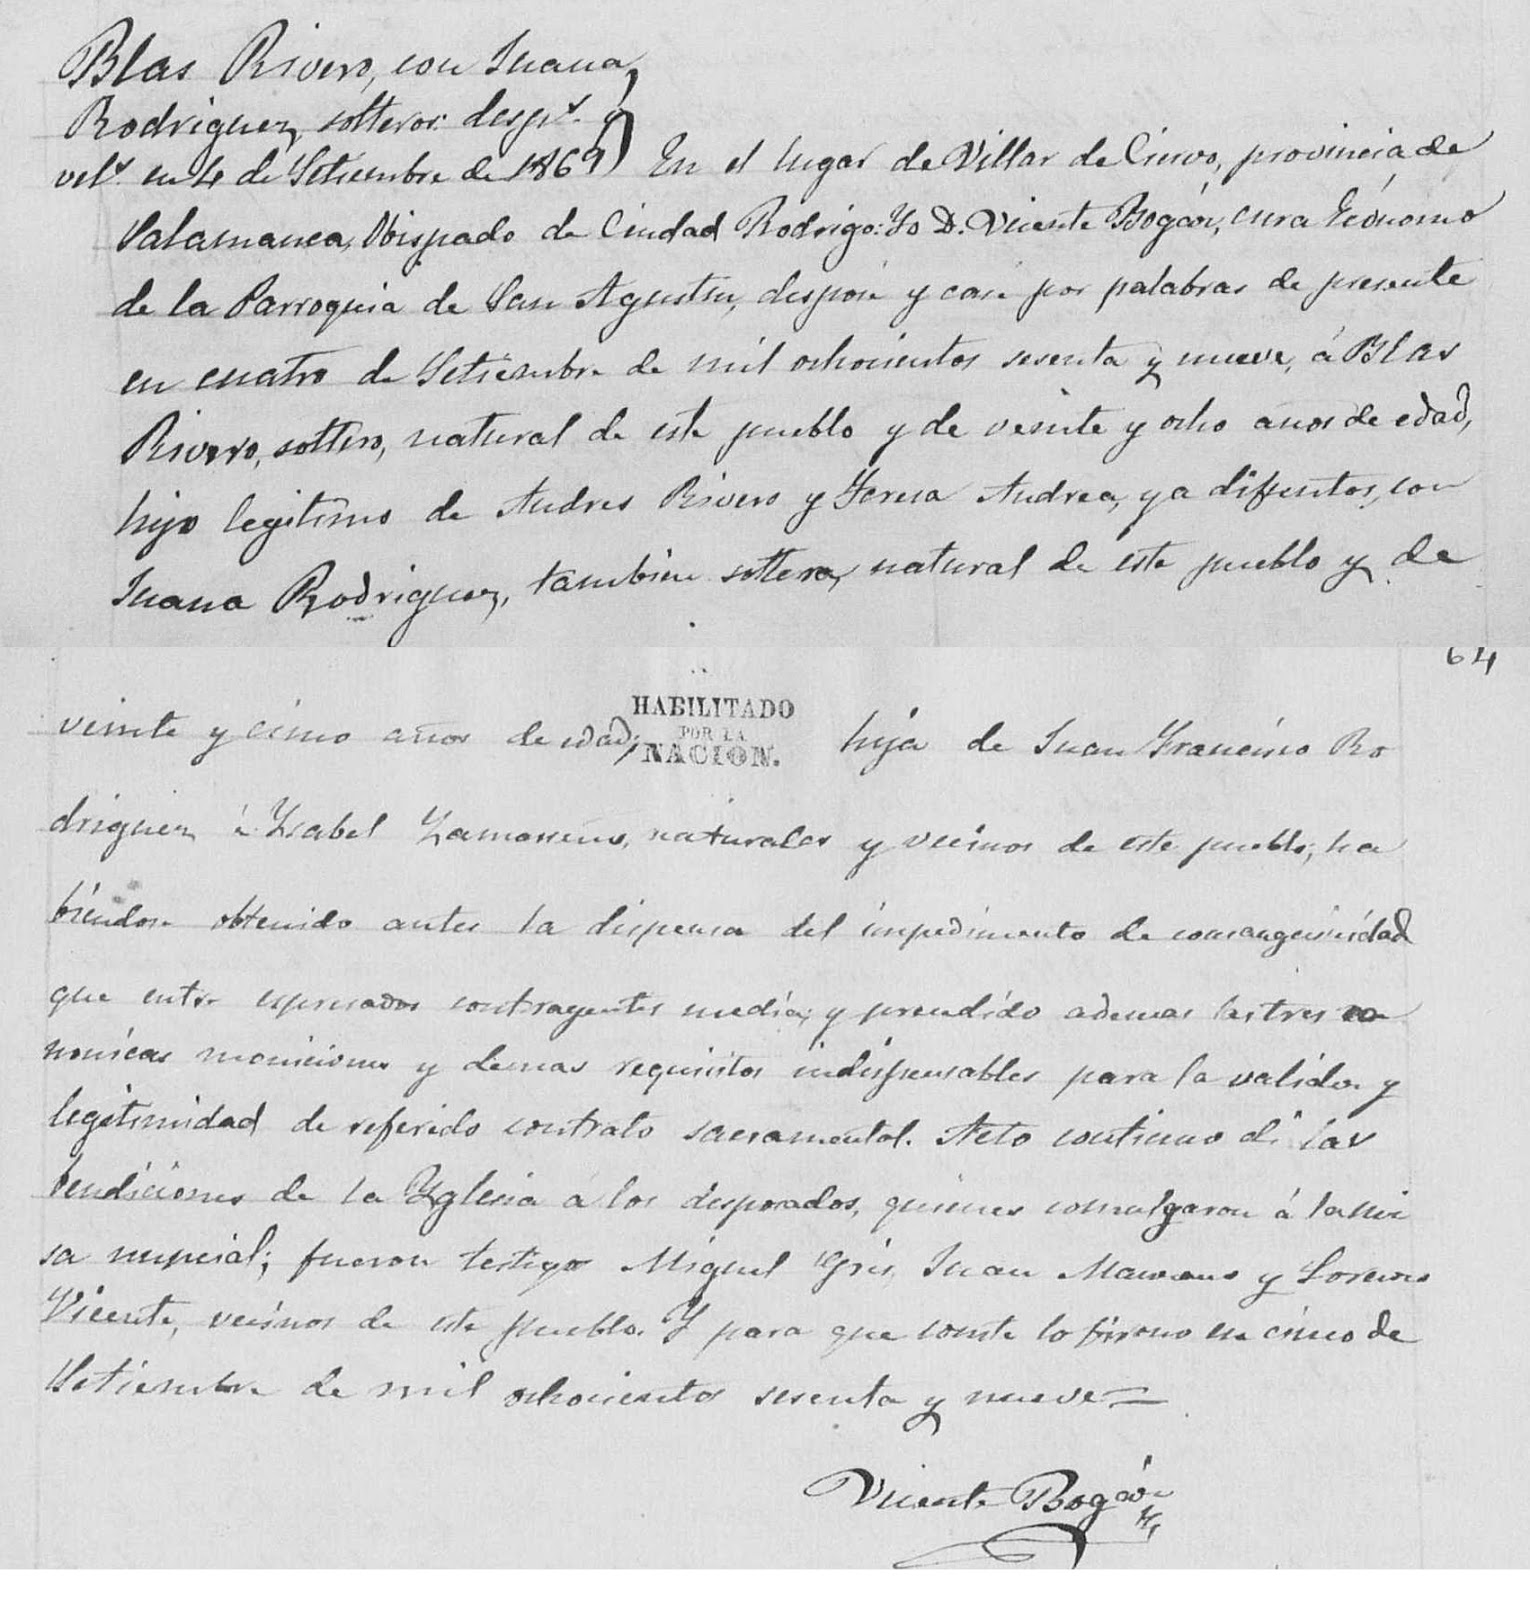 Blas Rivero, con Juana
Rodriguez, solteros: desps. y
vels. en 4 de Setiembre de 1869) En el lugar de Villar de Ciervo, provincia de
Salamanca, Obispado de Ciudad Rodrigo: Yo D. Vicente Bogán, cura Ecónomo
de la Parroquia de San Agustin, desposé y casé por palabras de presente
en cuatro de Setiembre de mil ochocientos sesenta y nueve, á Blas
Rivero, soltero, natural de este pueblo y de veinte y ocho años de edad,
hijo legitimo de Andres Rivero y Teresa Andrea, ya difuntos, con
Juana Rodriguez, tambien soltera, natural de este pueblo y de
64
HABILITADO
POR LA
NACION.
veinte y cinco años de edad, hija de Juan Francisco Ro
driguez é Ysabel Zamarreño, naturales y vecinos de este pueblo; ha
biendose obtenido antes la dispensa del impedimento de consanguinidad
que entre espresados contrayentes media; y precedido ademas las tres ca
nonicas moniciones y demas requisitos indispensables para la validez y
legitimidad de referido contrato sacramental. Acto continuo dí las
bendiciones de la Yglesia á los desposados, quienes comulgaron á la mi
sa nupcial; fueron testigos Miguel Gris, Juan Manzano y Lorenzo
Vicente, vecinos de este pueblo. Y para que conste lo firmo en cinco de
Setiembre de mil ochocientos sesenta y nueve=
Vicente Bogán